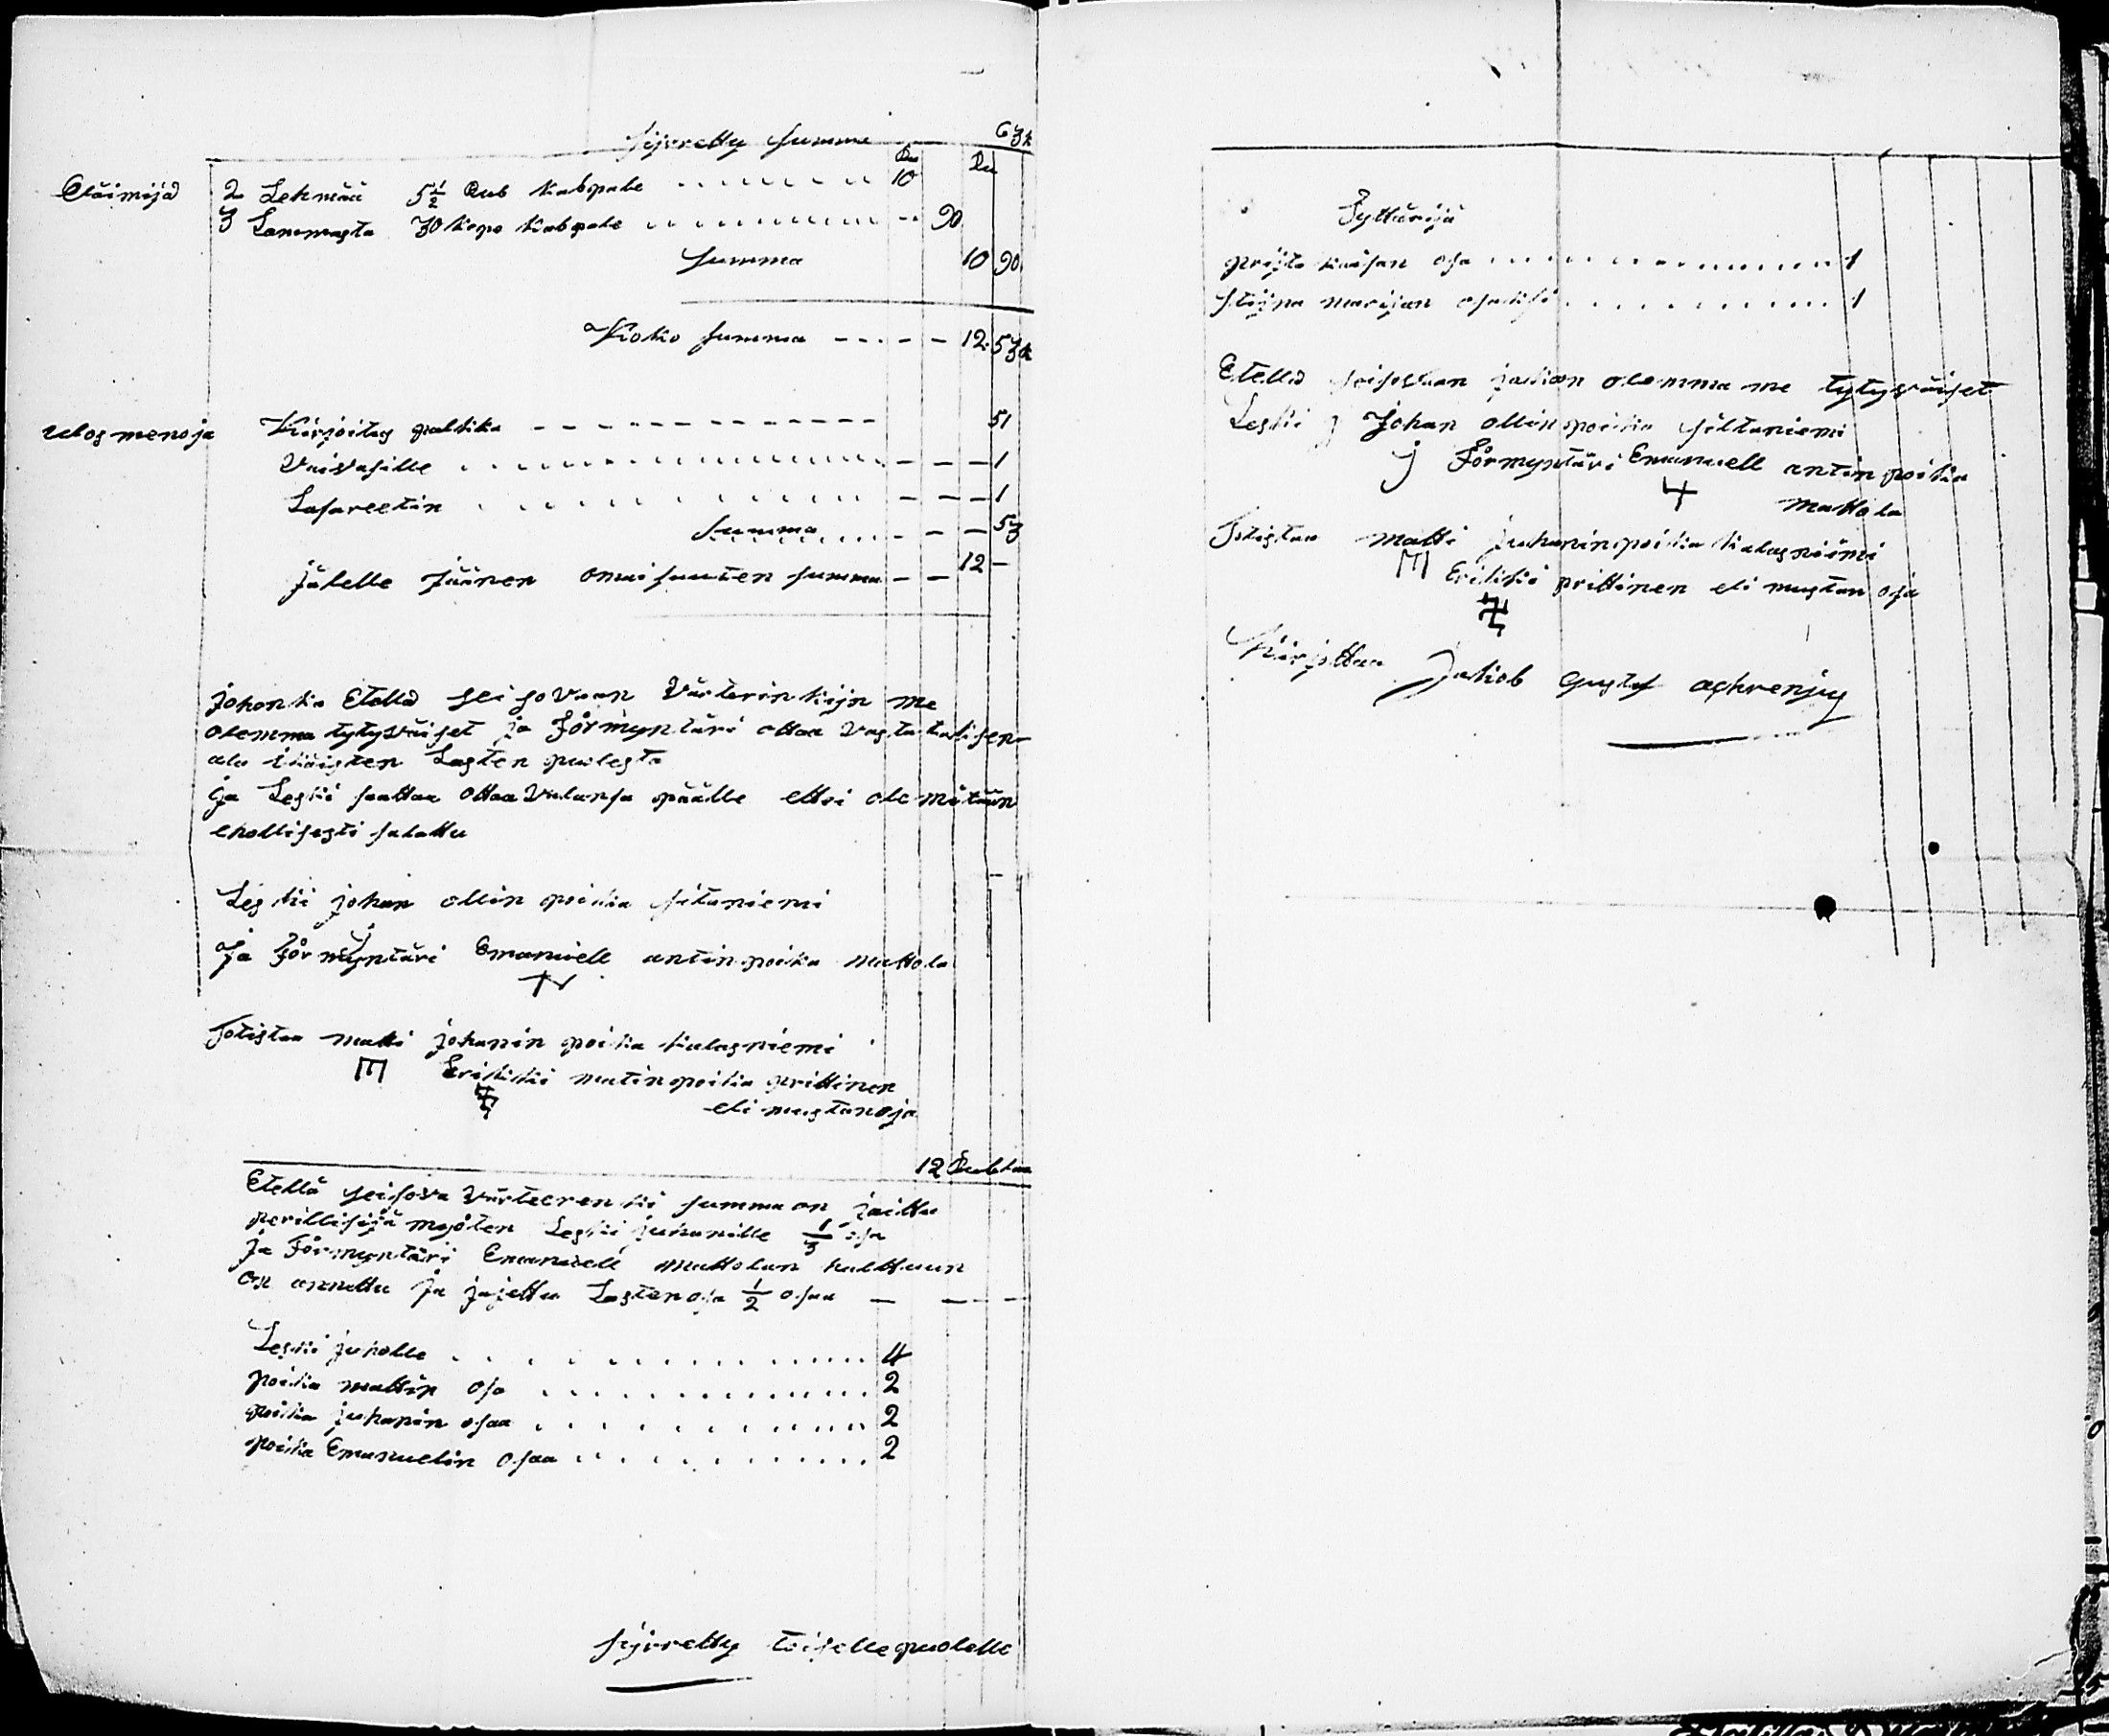 sijrretty summa 63k
Ru Ru
Eläimijä 2 Lehmää 5½ Rub kabpale 10
3 Lammasta 30 kopo kabpale 90
summa 10 90
Koko summa 12. 53k
ulos menoja Kirjoitus palkka 51
Vaivasille 1
Lasareetin 1
summa 53
jälelle jäänen omaisuuten summa 12 -
johonka Etellä seisovaan Värterinkijn me
olemma tytyväiset ja Förmyntäri ottaa vastataksen
ala ikäisten Lasten puolesta
ja Leski saattaa ottaa Valansa päälle ettei ole mitään
ehollisesti salattu
Leski johan ollin poika siltaniemi
ja Förmyntäri Emanuell antinpoika mattola
Totistaa matti johanin poika kalasniemi
Erikki matinpoika prittinen
eli mustanoja
12 Rublaa
Etellä seisova värteerenki summa on jaittu
perillisijä myöten Leski juhanille ⅓ osa
ja Förmyntäri Emanuell mattolan halttuun
on annettu ja jajettu Lasten osa ½ osaa
Leski juholle 4
poika mattin osa 2
poika juhanin osaa 2
poika Emanuelin osaa 2
sijrretty toiselle puolelle
Tyttärijä
prijta kaisan osa 1
stijna marijan osaksi 1
Etellä seisovaan jakoon olemma me tytyväiset
Leski J Johan ollinpoika siltaniemi
j Förmyntäri Emanuell antinpoika
mattola
Totistaa matti juhaninpoika kalasniemi
Erikki prittinen eli mustanoja
Kirjottaa Jakob Gustaf